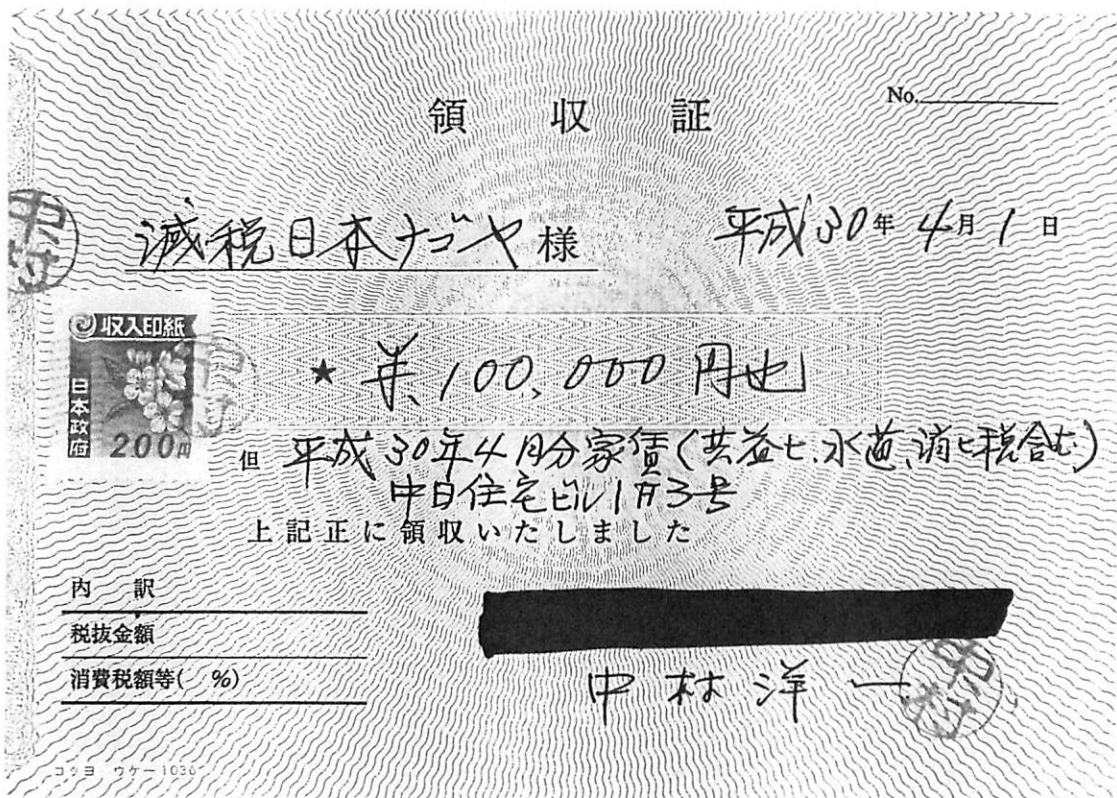 No.
領収証
減税日本ナゴヤ 様
平成30年4月1日
中村
収入印紙
日本政府
200円
中村
★ ¥100,000円也
但 平成30年4月分家賃(共益ヒ、水道、消ヒ税含む)
中日住宅ビル1F3号
上記正に領収いたしました
内訳
税抜金額
消費税額等( %)
中村洋一
中村
コクヨ ウケ-1036